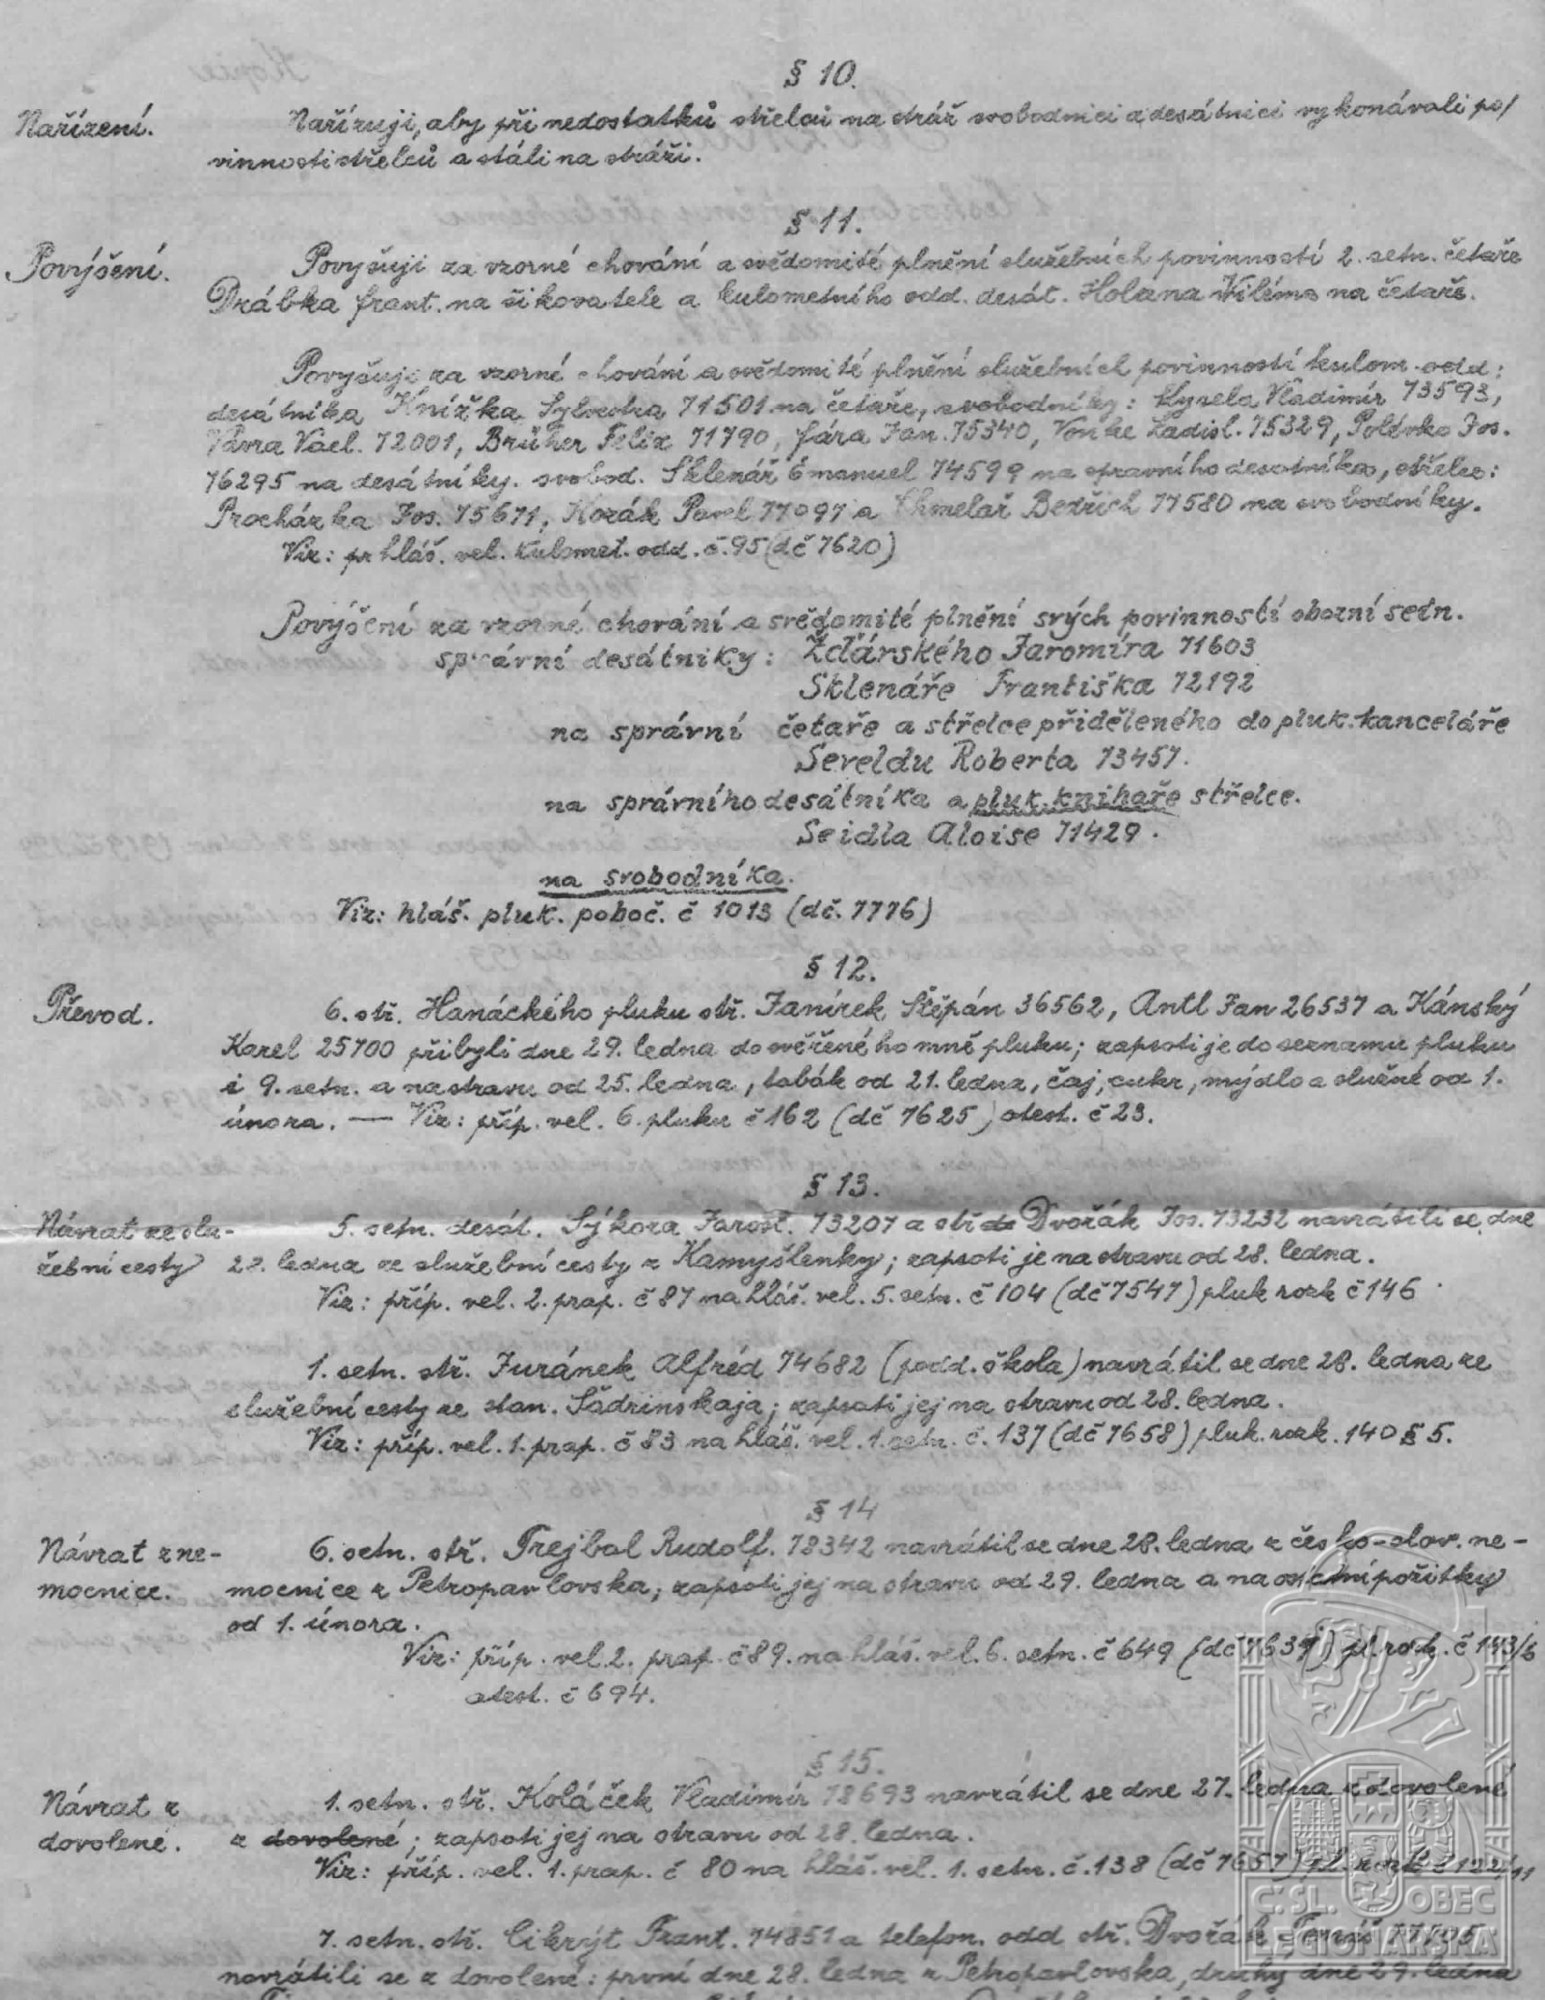 § 10.
Nařízení. Nařizuji, aby při nedostatků střelců na stráž svobodníci a desátníci vykonávali po/
vinnosti střelců a stáli na stráži.
§ 11.
Povýšení. Povyšuji za vzorné chování a svědomité plnění služebních povinností 2. setn. četaře
Drábka Frant. na šikovatele a kulometního odd. desát. Holana Viléma na četaře.
Povyšuji za vzorné chování a svědomité plnění služebních povinností kulom. odd:
desátníka Knížka Sylvestra 71501 na četaře, svobodníky: Kysela Vladimír 73593,
Vávra Václ. 72001, Brüher Felix 71790, Jára Jan. 75340, Vonke Ladisl. 75329, Polívka Jos.
76295 na desátníky. svobod. Sklenář Emanuel 74599 na správního desátníka, střelce:
Procházka Jos. 75671, Horák Pavel 77097 a Chmelař Bedřich 77580 na svobodníky.
Viz: hláš. vel. kulomet. odd. č. 95 (dč 7620)
Povýšení za vzorné chování a svědomité plnění svých povinností obozní setn.
správní desátníky: Žďárského Jaromíra 71603
Sklenáře Františka 72192
na správní četaře a střelce přiděleného do pluk. kanceláře
Sereldu Roberta 73457.
na správního desátníka a pluk. knihaře střelce.
Seidla Aloise 71429.
na svobodníka.
Viz: hláš. pluk. poboč. č 1013 (dč. 7776)
§ 12.
Převod. 6. stř. Hanáckého pluku stř. Janírek Štěpán 36562, Antl Jan 26537 a Kánský
Karel 25700 přibyli dne 29. ledna do svěřeného mně pluku; zapsati je do seznamu pluku
i 9. setn. a na stravu od 25. ledna, tabák od 21. ledna, čaj, cukr, mýdlo a služné od 1.
února. — Viz: příp. vel. 6. pluku č 162 (dč 7625) atest. č 23.
§ 13.
Návrat ze slu- 5. setn. desát. Sýkora Jarosl. 73207 a stř. Dvořák Jos. 73232 navrátili se dne
žební cesty 28. ledna ze služební cesty z Kamyšlenky; zapsati je na stravu od 28. ledna.
Viz: příp. vel. 2. prap. č 87 na hláš. vel. 5. setn. č 104 (dč 7547) pluk rozk č 146
1. setn. stř. Juránek Alfréd 74682 (podd. škola) navrátil se dne 28. ledna ze
služební cesty ze stan. Šadrinskaja; zapsati jej na stravu od 28. ledna.
Viz: příp. vel. 1. prap. č 83 na hláš. vel. 1. setn. č. 137 (dč 7658) pluk. rozk. 140 § 5.
§ 14
Návrat z ne- 6. setn. stř. Trejbal Rudolf. 78342 navrátil se dne 28. ledna z česko-slov. ne-
mocnice. mocnice z Petropavlovska; zapsati jej na stravu od 29. ledna a na požitky
od 1. února.
Viz: příp. vel. 2. prap. č 89. na hláš. vel. 6. setn. č 649 (dč 7637) pl. rozk. č 143/6
atest. č 694.
§ 15.
Návrat z 1. setn. stř. Koláček Vladimír 78693 navrátil se dne 27. ledna z dovolené
dovolené. z dovolené; zapsati jej na stravu od 28. ledna.
Viz: příp. vel. 1. prap. č 80 na hláš. vel. 1. setn. č. 138 (dč 7657) pl. rozk č 122/11
7. setn. stř. Cikrýt Frant. 74851 a telefon. odd stř. Dvořák Tomáš
navrátili se z dovolené: první dne 28. ledna z Petropavlovska, druhý dne 29. ledna
Č.SL. OBEC
LEGIONÁŘSKÁ